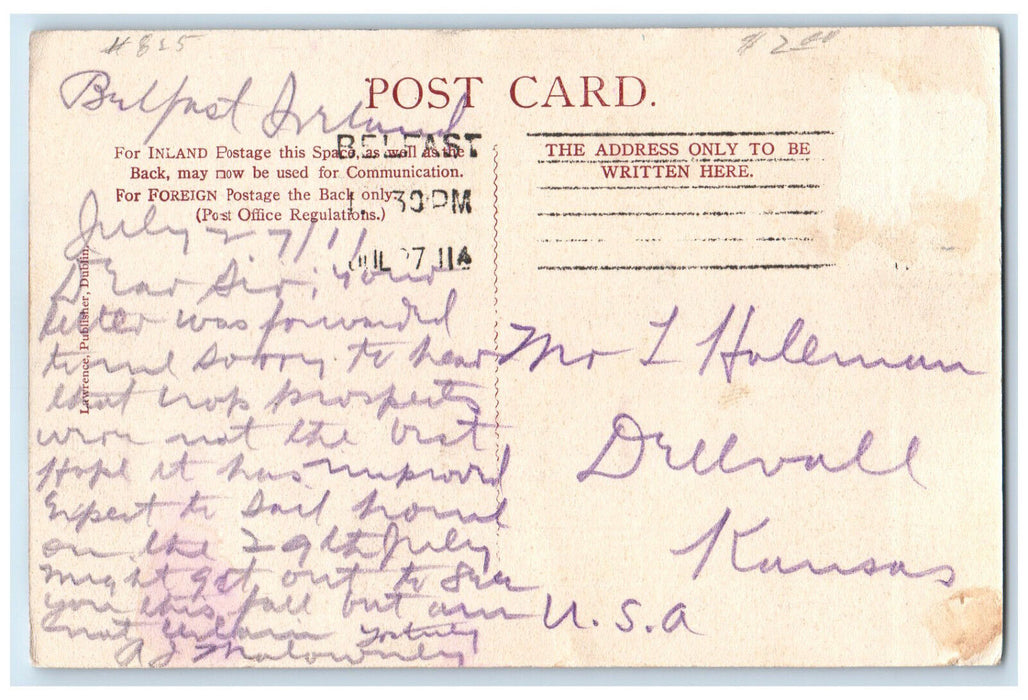 # 825
$ 2.00
Belfast Ireland
POST CARD.
BELFAST
1 30 PM
JUL 27 11
For INLAND Postage this Space, as well as the
Back, may now be used for Communication.
For FOREIGN Postage the Back only.
(Post Office Regulations.)
THE ADDRESS ONLY TO BE
WRITTEN HERE.
Lawrence, Publisher, Dublin.
July 27/11
Dear Sir; your
letter was forwarded
to me sorry to hear
that crop prospects
were not the best
Hope it has improved
Expect to sail home
on the 29th July
might get out to see
you this fall but am
not certain
Mr L Holeman
Dellvall
Kansas
U.S.A